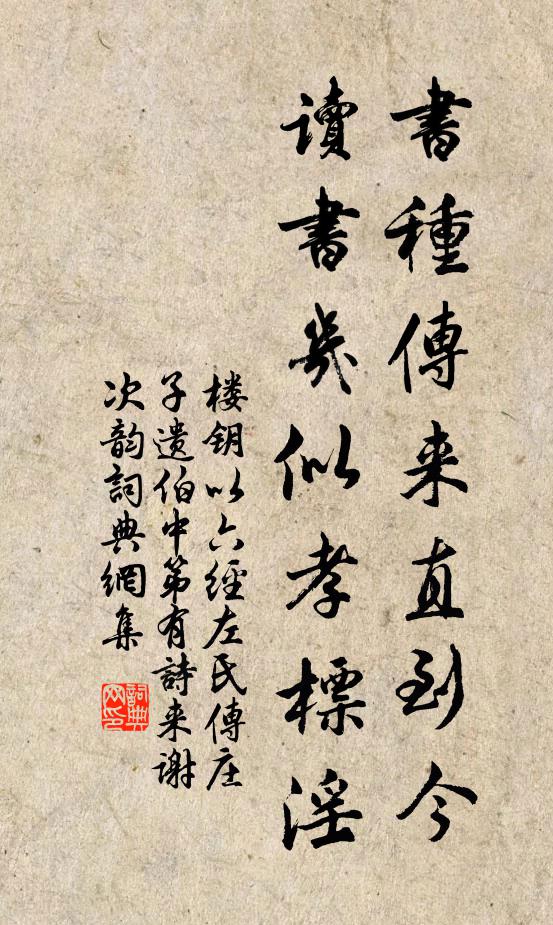 書種傳来直到今
讀書幾似孝標淫
楼钥以六經左氏傳庄
子遗伯中第有詩来谢
次韵詞典網集
詞典網印